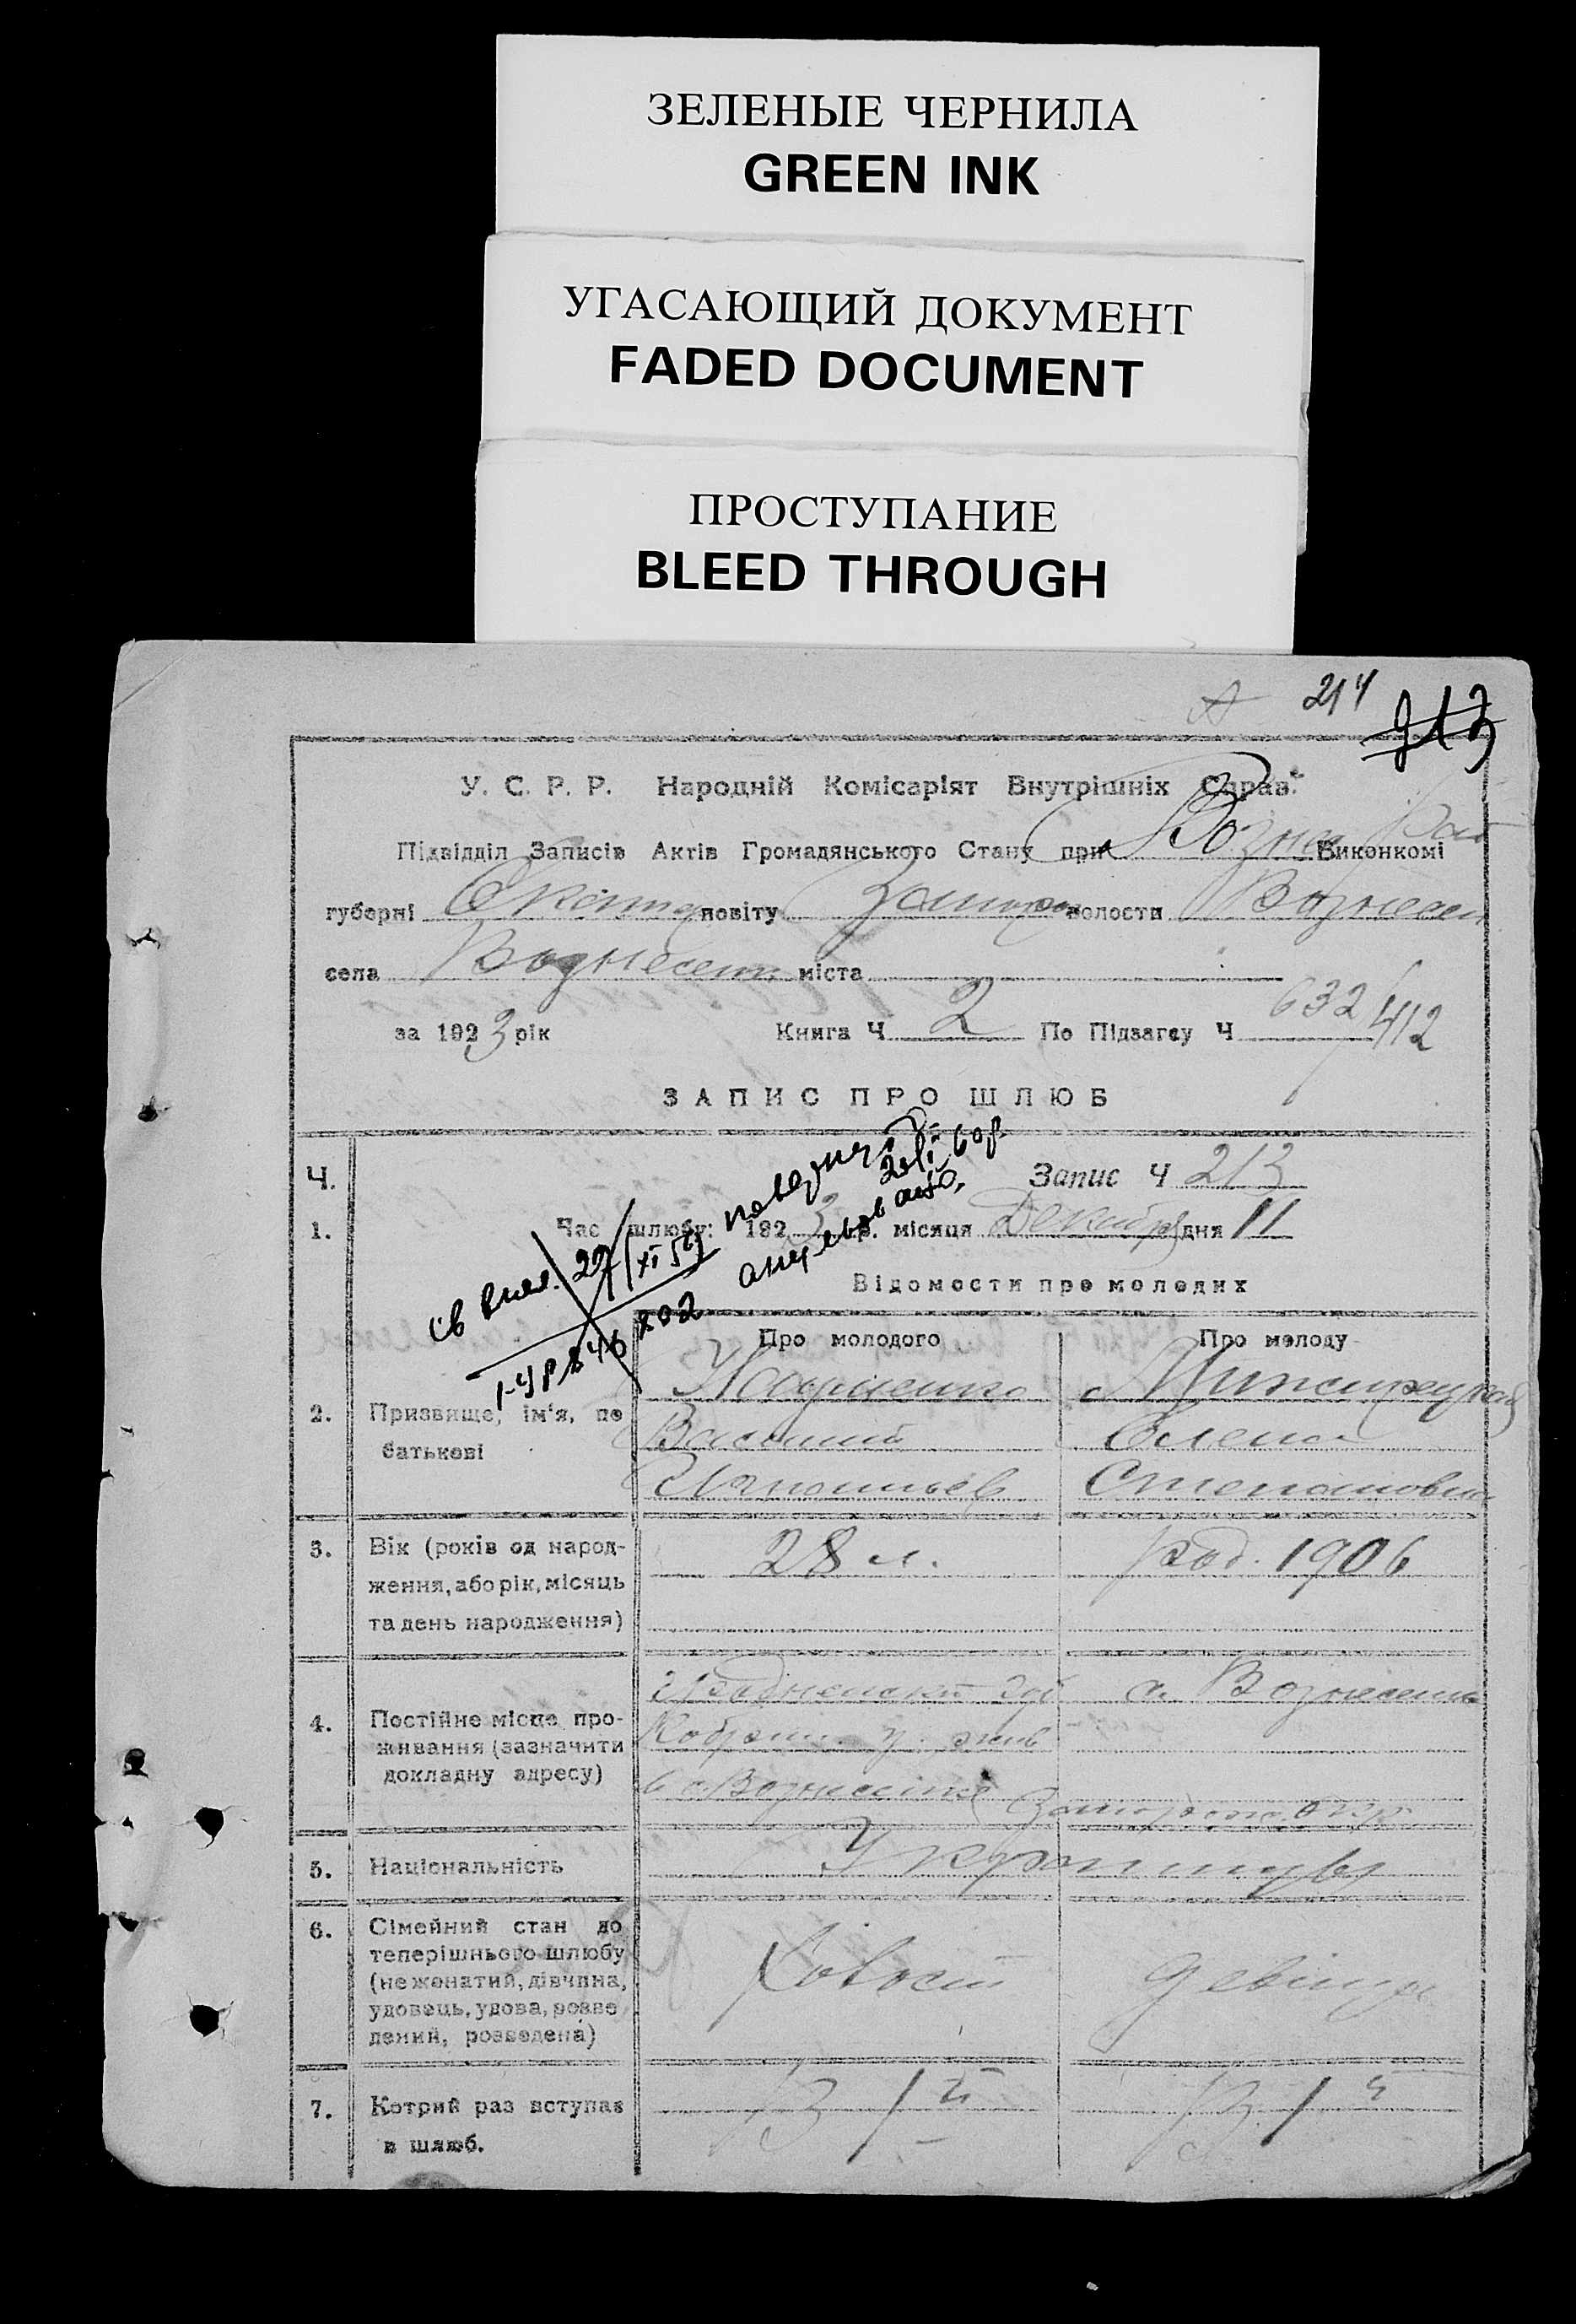 ЗЕЛЕНЫЕ ЧЕРНИЛА
GREEN INK
УГАСАЮЩИЙ ДОКУМЕНТ
FADED DOCUMENT
ПРОСТУПАНИЕ
BLEED THROUGH
214
213
У. С. Р. Р. Народній Комісаріят Внутрішніх Справ.
Підвідділ Записів Актів Громадянського Стану при Вознес Рай Виконкомі
губерні Екатер повіту Запорож волости Вознесен
села Вознесен міста
за 1923 рік Книга Ч 2 По Підзагсу Ч 632/412
ЗАПИС ПРО ШЛЮБ
Ч. Запис Ч 213
1. Час шлюбу: 1923 р. місяця Декабря дня 11
Відомости про молодих
Про молодого Про молоду
2. Призвище, ім'я, по
батькові
Василий Елена
Игнатьев Степановна
3. Вік (років од народ- 28 л. род. 1906
ження, або рік, місяць
та день народження)
4. Постійне місце про-
живання (зазначити
докладну адресу)
Гродненской губ с. Вознесенка
Кобрин. у. жив
в с. Вознесенке
5. Національність Украинцы
6. Сімейний стан до
теперішнього шлюбу
(не женатий, дівчина,
удовець, удова, розве
дений, розведена)
Холост девица
7. Котрий раз вступав В 1й В 1й
в шлюб.